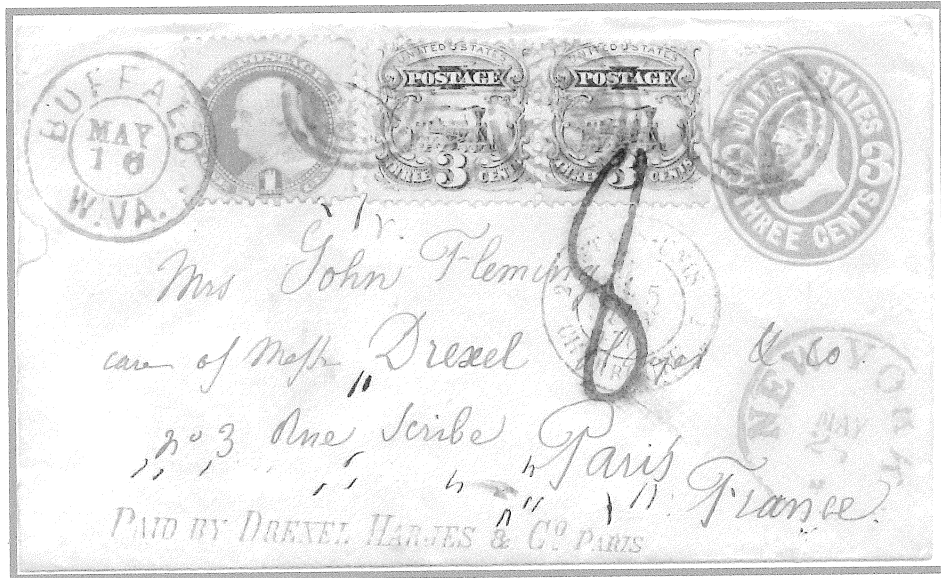 BUFFALO
MAY
16
W.VA.
1
UNITED STATES
POSTAGE
3
THREE CENTS
UNITED STATES
POSTAGE
3
THREE CENTS
UNITED STATES
3 3
THREE CENTS
8
Mrs John Fleming
care of Messrs Drexel & Co.
No 3 Rue Scribe Paris
France.
NEW YORK
MAY
PAID BY DREXEL HARJES & Co PARIS